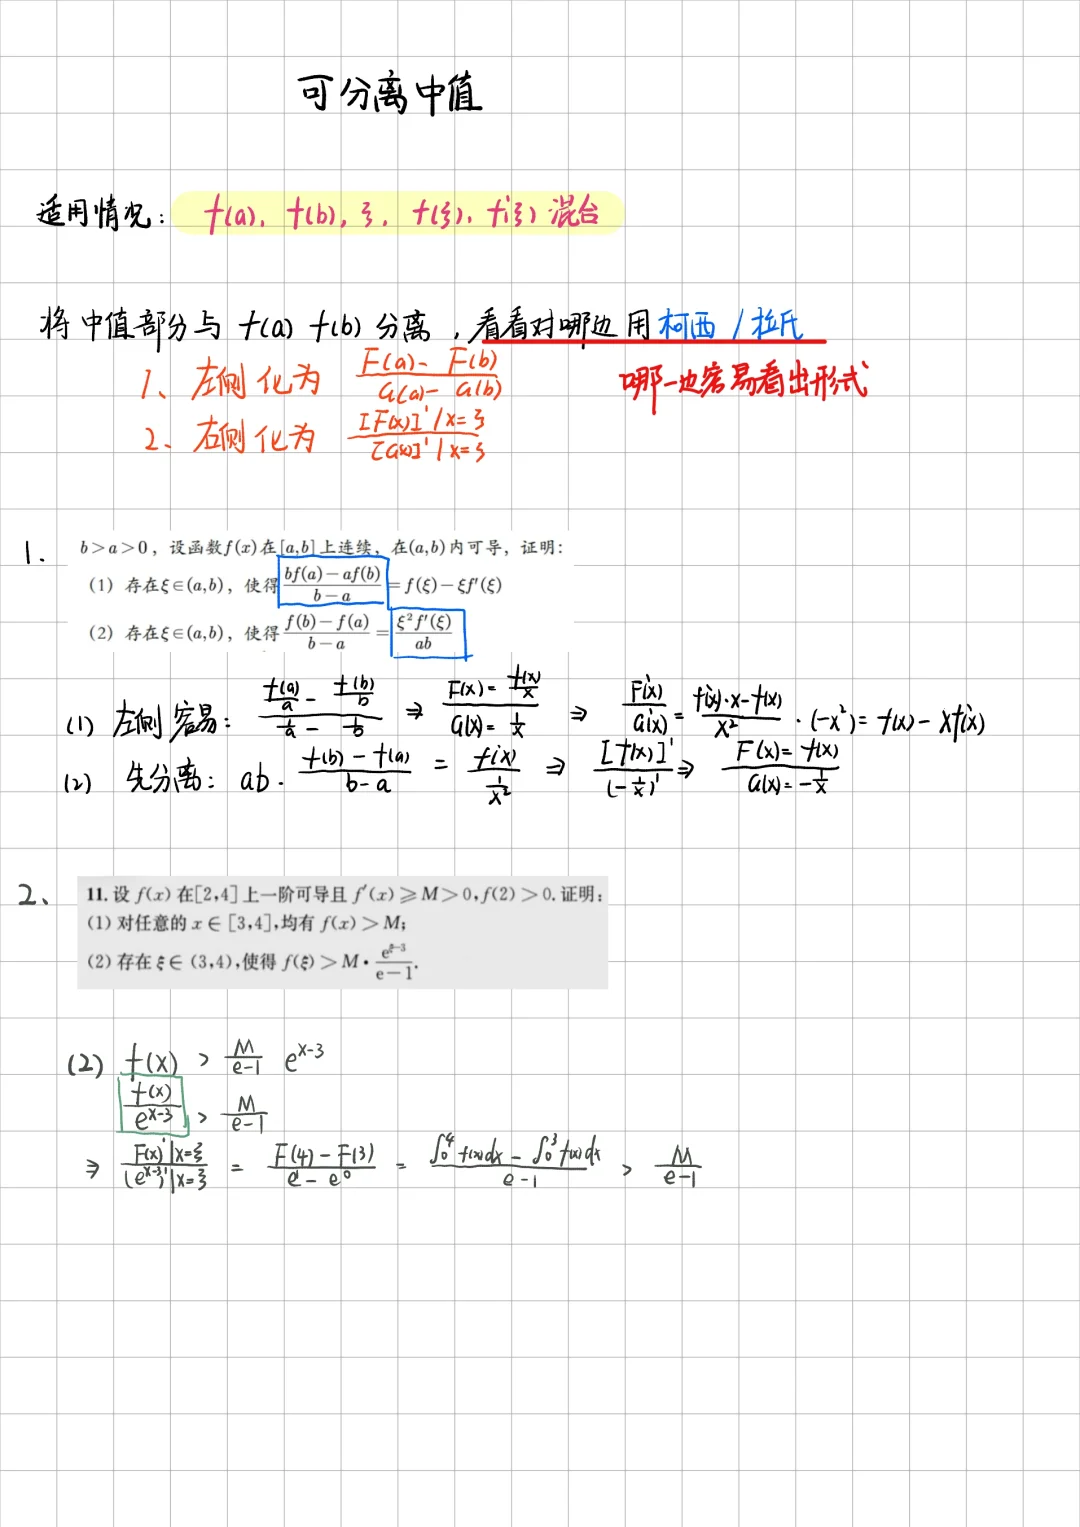 可分离中值
适用情况: f(a), f(b), ξ, f(ξ), f'(ξ) 混合
将中值部分与 f(a) f(b) 分离, 看看对哪边用柯西/拉氏
1、左侧化为 \frac{F(a)-F(b)}{G(a)-G(b)} 哪一边容易看出形式
2、右侧化为 \frac{[F(x)]'|x=ξ}{[G(x)]'|x=ξ}
1. b>a>0, 设函数f(x)在[a,b]上连续, 在(a,b)内可导, 证明:
(1) 存在ξ∈(a,b), 使得\frac{bf(a)-af(b)}{b-a}=f(ξ)-ξf'(ξ)
(2) 存在ξ∈(a,b), 使得\frac{f(b)-f(a)}{b-a}=\frac{ξ²f'(ξ)}{ab}
(1) 左侧容易: \frac{\frac{f(a)}{a}-\frac{f(b)}{b}}{\frac{1}{a}-\frac{1}{b}} ⇒ \frac{F(x)=\frac{f(x)}{x}}{G(x)=\frac{1}{x}} ⇒ \frac{F'(x)}{G'(x)}=\frac{f'(x)·x-f(x)}{x²}·(-x²)=f(x)-xf'(x)
(2) 先分离: ab·\frac{f(b)-f(a)}{b-a}=\frac{f'(x)}{\frac{1}{x²}} ⇒ \frac{[f(x)]'}{(-\frac{1}{x})'} ⇒ \frac{F(x)=f(x)}{G(x)=-\frac{1}{x}}
2、 11. 设 f(x) 在[2,4]上一阶可导且 f'(x)⩾M>0,f(2)>0. 证明:
(1) 对任意的 x∈[3,4],均有 f(x)>M;
(2) 存在 ξ∈(3,4),使得 f(ξ)>M·\frac{e^{ξ-3}}{e-1}.
(2) f(x) > \frac{M}{e-1} e^{x-3}
\frac{f(x)}{e^{x-3}} > \frac{M}{e-1}
⇒ \frac{F(x)'|x=ξ}{(e^{x-3})'|x=ξ} = \frac{F(4)-F(3)}{e^1-e^0} = \frac{∫_0^4 f(x)dx-∫_0^3 f(x)dx}{e-1} > \frac{M}{e-1}